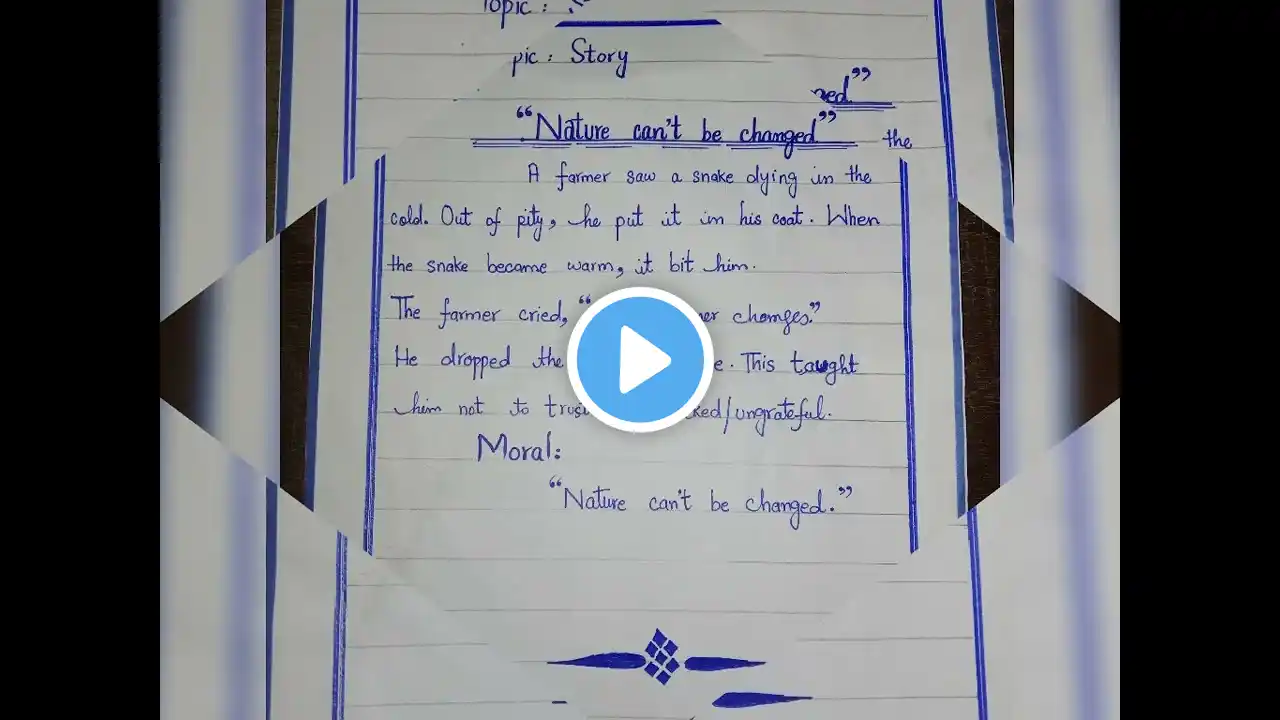 Topic :
pic : Story
ged"
"Nature can't be changed"
the
A farmer saw a snake dying in the
cold. Out of pity, he put it in his coat. When
the snake became warm, it bit him.
The farmer cried, " changes."
He dropped the This taught
him not to /ungrateful.
Moral:
"Nature can't be changed."